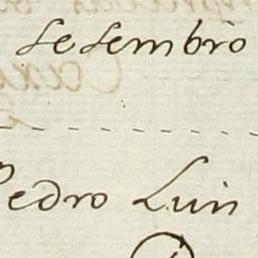 Desembro
Pedro Luin